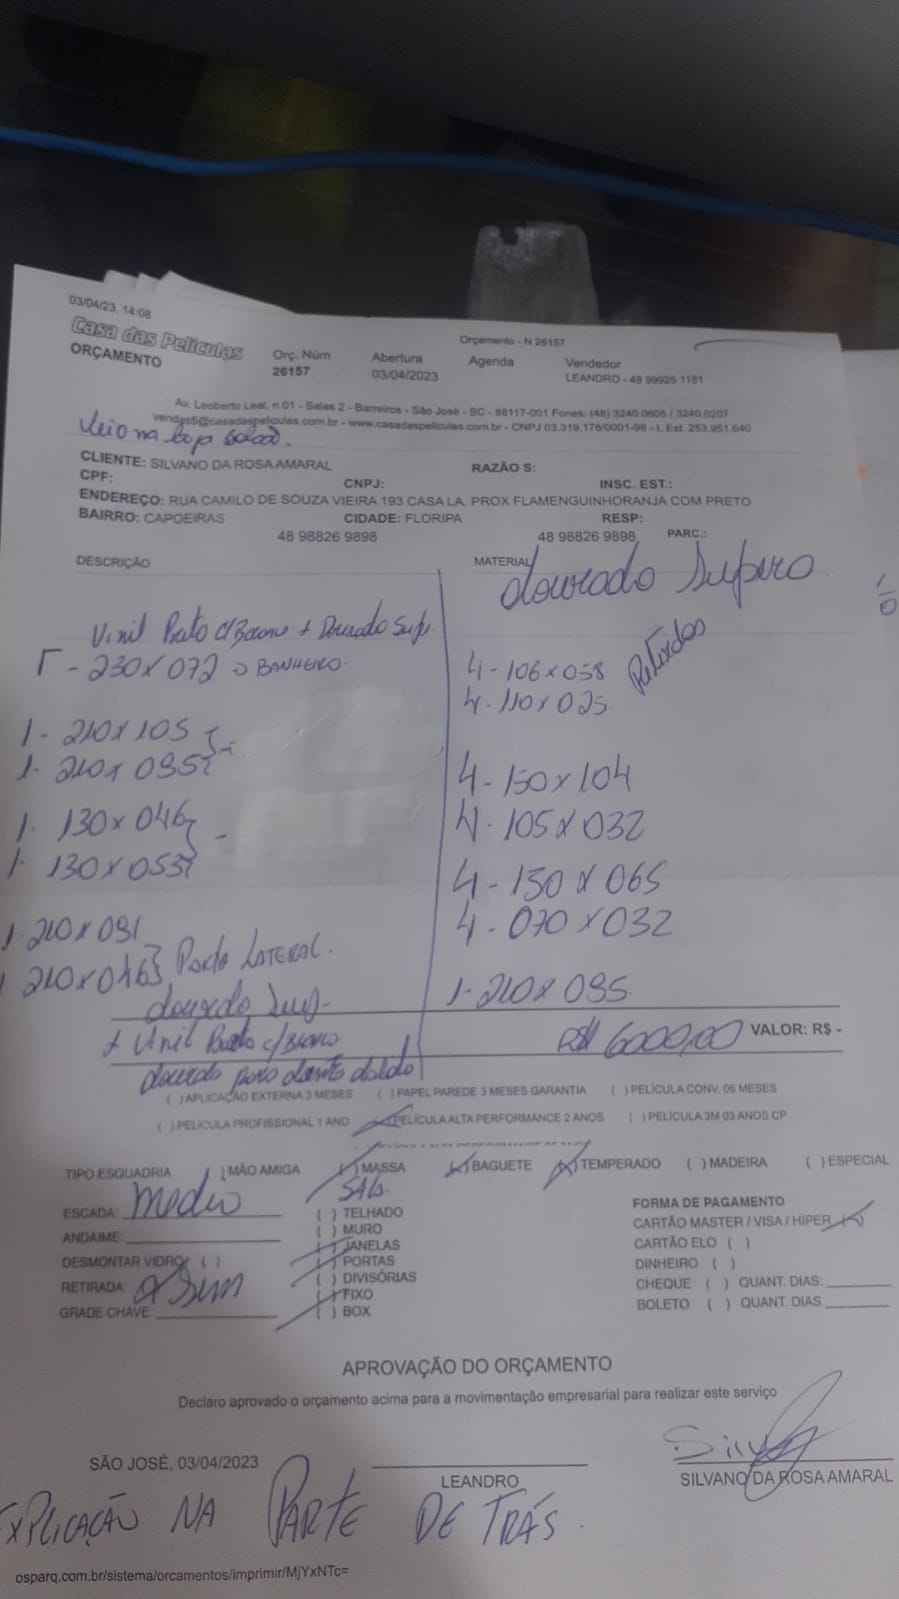 03/04/23, 14:08
Orçamento - N 26157
Casa das Películas
ORÇAMENTO
Orç. Núm
26157
Abertura
03/04/2023
Agenda
Vendedor
LEANDRO - 48 99925 1181
Av. Leoberto Leal, n 01 - Salas 2 - Barreiros - São José - SC - 88117-001 Fones: (48) 3240.0605 / 3240.0207
vendas5@casadaspeliculas.com.br - www.casadaspeliculas.com.br - CNPJ 03.319.178/0001-98 - I. Est. 253.951.640
Veio na loja
CLIENTE: SILVANO DA ROSA AMARAL
RAZÃO S:
CPF:
CNPJ:
INSC. EST.:
ENDEREÇO: RUA CAMILO DE SOUZA VIEIRA 193 CASA LA. PROX FLAMENGUINHORANJA COM PRETO
BAIRRO: CAPOEIRAS
CIDADE: FLORIPA
RESP:
48 98826 9898
48 98826 9898
PARC.:
DESCRIÇÃO
MATERIAL
dourado Supero
Vinil Preto c/Branco + Dourado Sup.
- 230 x 072 → BANHEIRO.
1 - 210 x 105
1 - 210 x 095
1 - 130 x 046
1 - 130 x 053
1 - 210 x 091
1 210 x 046 Porta LATERAL.
dourado
+ Vinil Preto c/Branco
dourado para
4 - 106 x 058
Retirdas
4 - 110 x 025
4 - 150 x 104
4 - 105 x 032
4 - 150 x 065
4 - 070 x 032
1 - 210 x 095
R$ 6000,00 VALOR: R$ -
( ) APLICAÇÃO EXTERNA 3 MESES ( ) PAPEL PAREDE 3 MESES GARANTIA ( ) PELÍCULA CONV. 06 MESES
( ) PELICULA PROFISSIONAL 1 ANO PELÍCULA ALTA PERFORMANCE 2 ANOS ( ) PELÍCULA 3M 03 ANOS CP
TIPO ESQUADRIA ( ) MÃO AMIGA ( ) MASSA ( ) BAGUETE (x) TEMPERADO ( ) MADEIRA ( ) ESPECIAL
ESCADA: Medio
ANDAIME:
DESMONTAR VIDRO ( )
RETIRADA: Sim
GRADE CHAVE:
( ) TELHADO
( ) MURO
( ) JANELAS
( ) PORTAS
( ) DIVISÓRIAS
( ) FIXO
( ) BOX
FORMA DE PAGAMENTO
CARTÃO MASTER / VISA / HIPER (x)
CARTÃO ELO ( )
DINHEIRO ( )
CHEQUE ( ) QUANT. DIAS:
BOLETO ( ) QUANT. DIAS
APROVAÇÃO DO ORÇAMENTO
Declaro aprovado o orçamento acima para a movimentação empresarial para realizar este serviço
SÃO JOSÉ, 03/04/2023
LEANDRO
SILVANO DA ROSA AMARAL
EXPLICAÇÃO NA PARTE DE TRÁS.
osparq.com.br/sistema/orcamentos/imprimir/MjYxNTc=